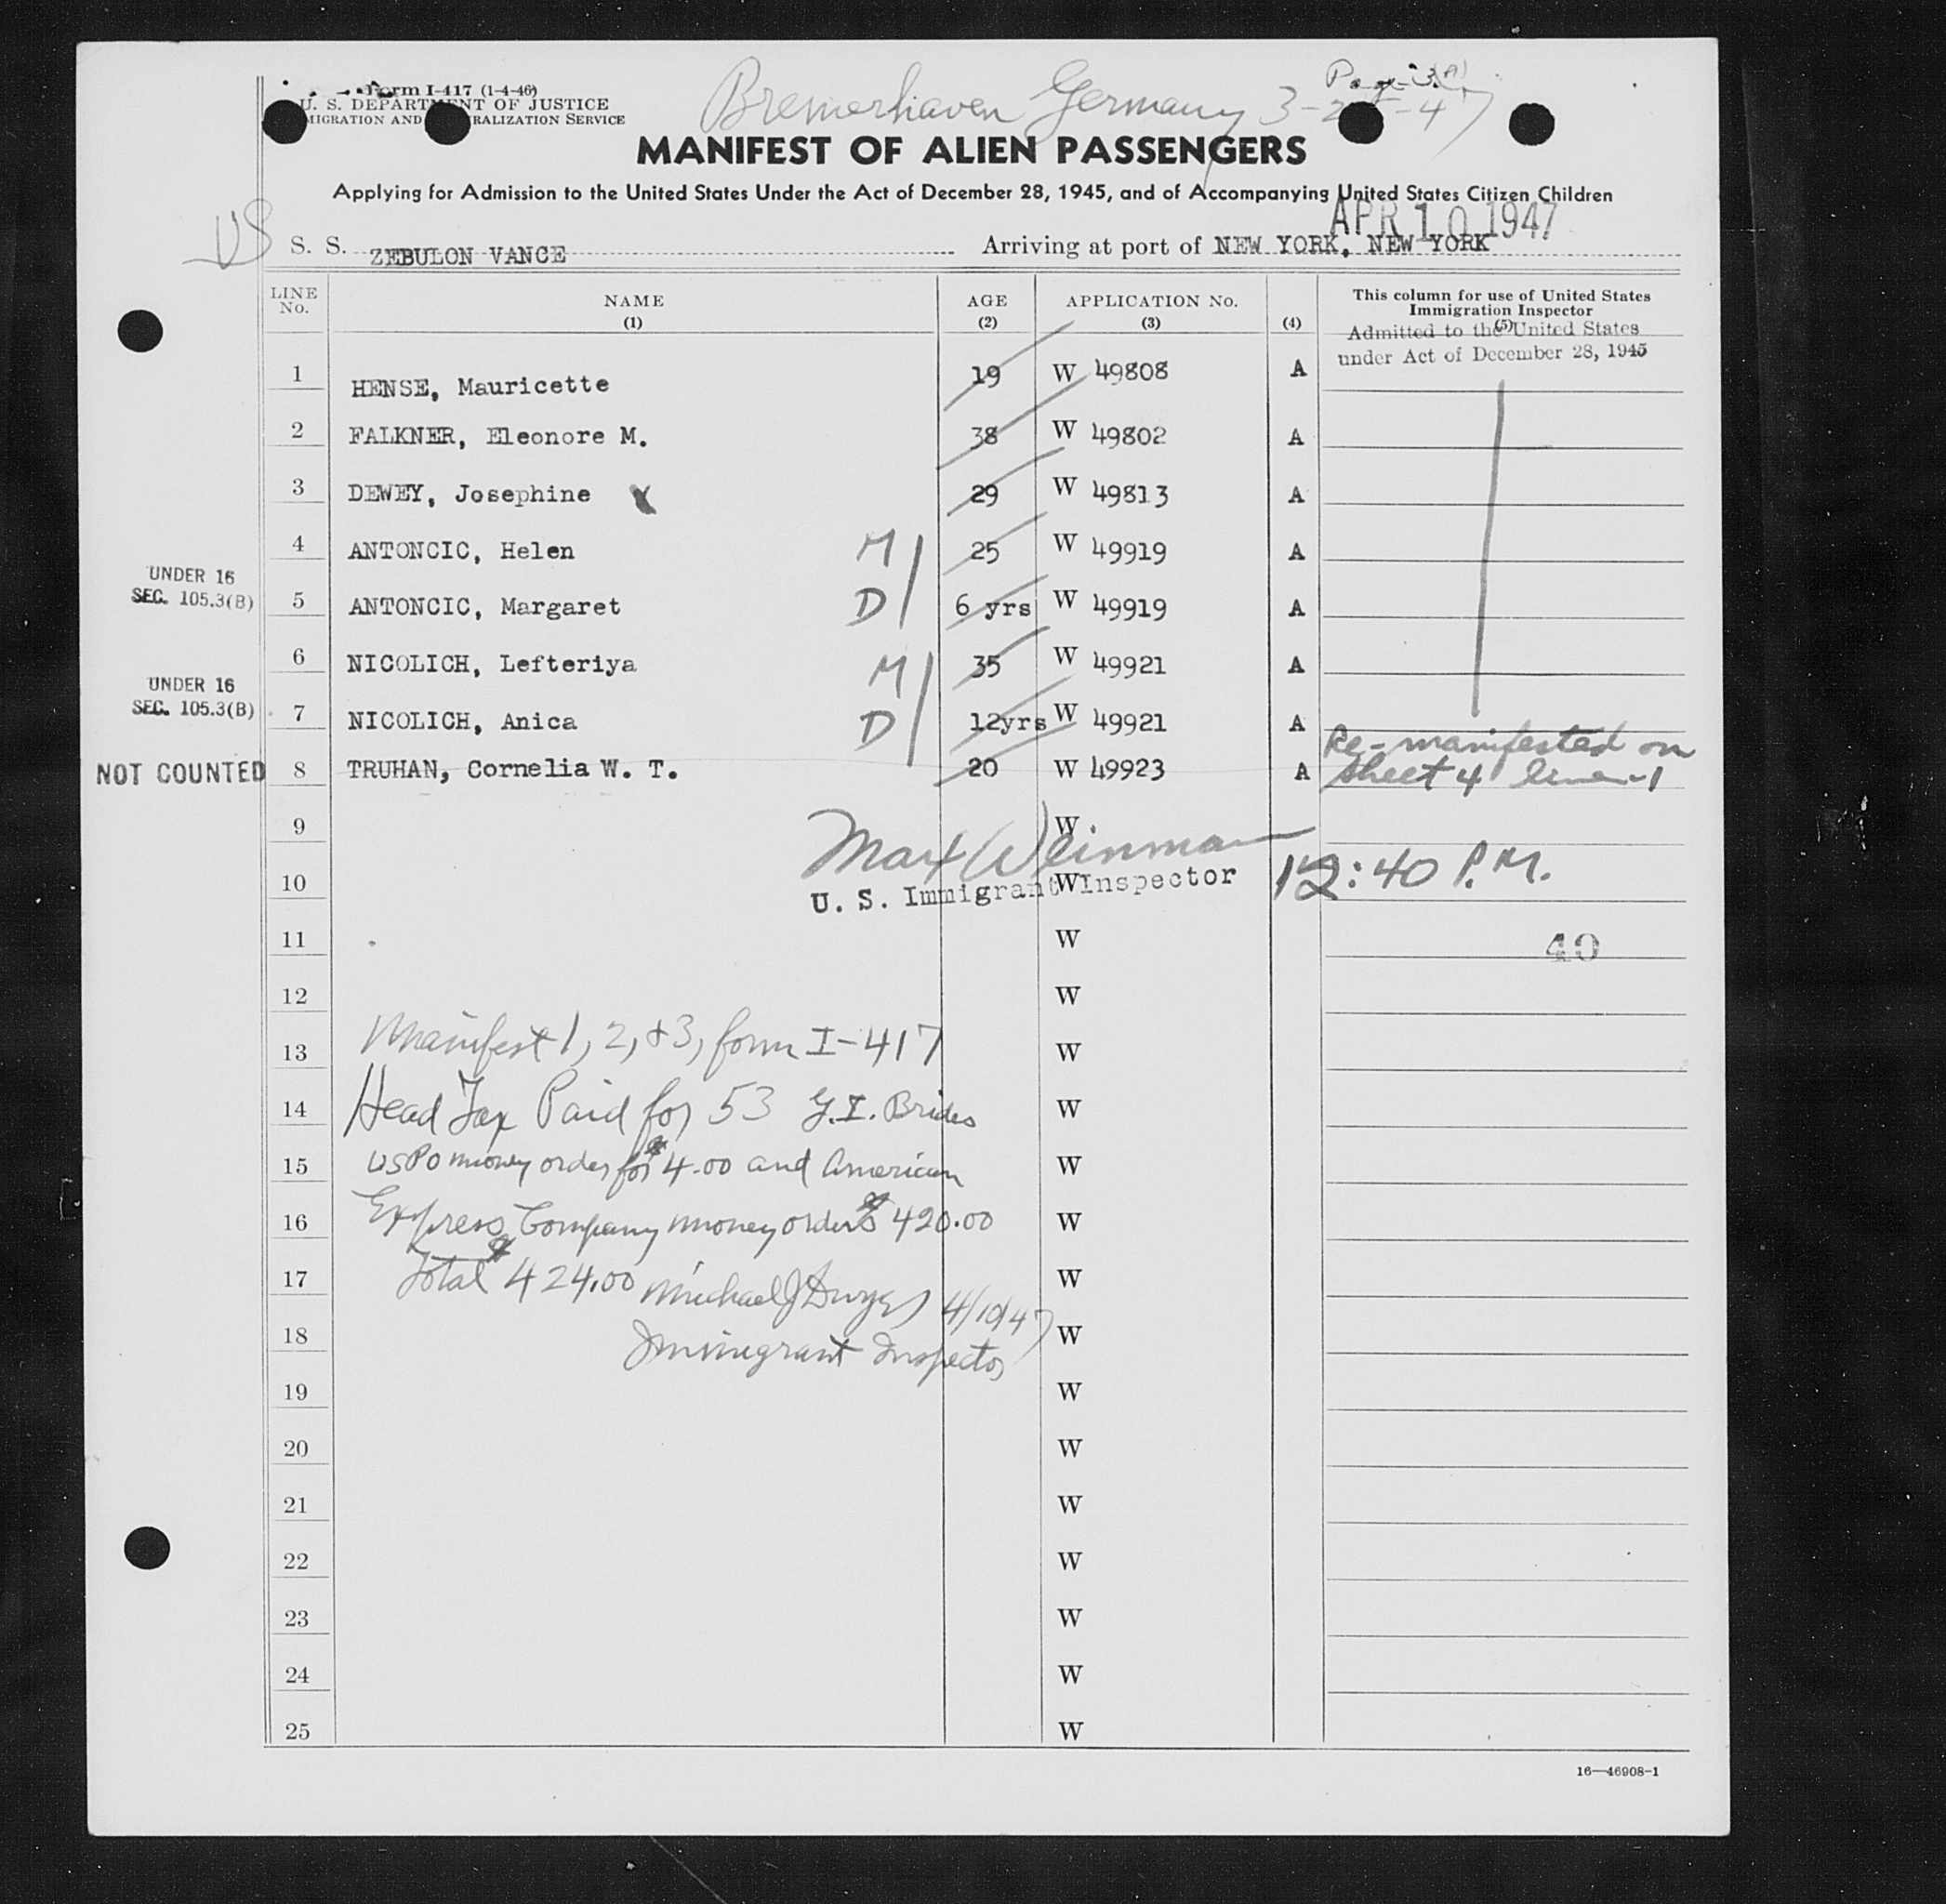 Form I-417 (1-4-46)
U. S. DEPARTMENT OF JUSTICE
MIGRATION AND RALIZATION SERVICE
Bremerhaven Germany 3-2 -47
Page 3 (A)
MANIFEST OF ALIEN PASSENGERS
Applying for Admission to the United States Under the Act of December 28, 1945, and of Accompanying United States Citizen Children
APR 10 1947
US
S. S. ZEBULON VANCE Arriving at port of NEW YORK, NEW YORK
LINE No. NAME (1) AGE (2) APPLICATION No. (3) (4) This column for use of United States Immigration Inspector (5)
Admitted to the United States
under Act of December 28, 1945
1 HENSE, Mauricette 19 W 49808 A
2 FALKNER, Eleonore M. 38 W 49802 A
3 DEWEY, Josephine X 29 W 49813 A
4 ANTONCIC, Helen M 25 W 49919 A
UNDER 16
SEC. 105.3(B) 5 ANTONCIC, Margaret D 6 yrs W 49919 A
6 NICOLICH, Lefteriya M 35 W 49921 A
UNDER 16
SEC. 105.3(B) 7 NICOLICH, Anica D 12yrs W 49921 A
Re-manifested on
NOT COUNTED 8 TRUHAN, Cornelia W. T. 20 W 49923 A sheet 4 line-1
9 W
Max Weinman
10 W 12:40 P.M.
U. S. Immigrant Inspector
11 W 40
12 W
13 Manifest 1, 2, +3, form I-417 W
14 Head Tax Paid for 53 G.I. Brides W
15 USPO money order for $4.00 and American W
16 Express Company money orders $420.00 W
17 Total $424.00 Michael J Dwyer 4/10/47 W
18 Immigrant Inspector W
19 W
20 W
21 W
22 W
23 W
24 W
25 W
16—46908-1